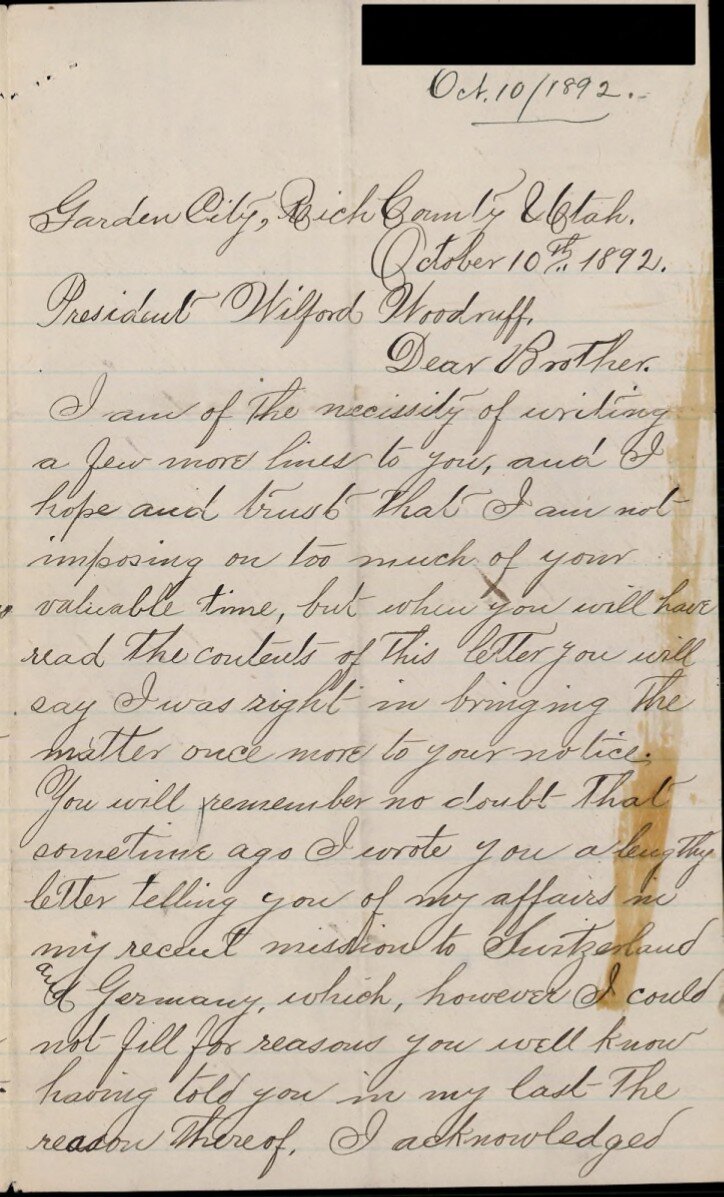 Oct. 10/1892.
Garden City, Rich County Utah.
October 10th. 1892.
President Wilford Woodruff.
Dear Brother.
I am of the necissity of writing
a few more lines to you, and I
hope and trust that I am not
imposing on too much of your
valuable time, but when you will have
read the contents of this letter you will
say I was right in bringing the
matter once more to your notice.
You will remember no doubt that
sometime ago I wrote you a lengthy
letter telling you of my affairs in
my recent mission to Switzerland
and Germany, which, however I could
not fill for reasons you well know
having told you in my last the
reason thereof. I acknowledged